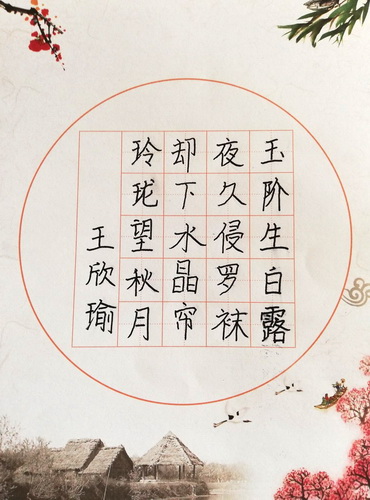 玉阶生白露
夜久侵罗袜
却下水晶帘
玲珑望秋月
王欣瑜